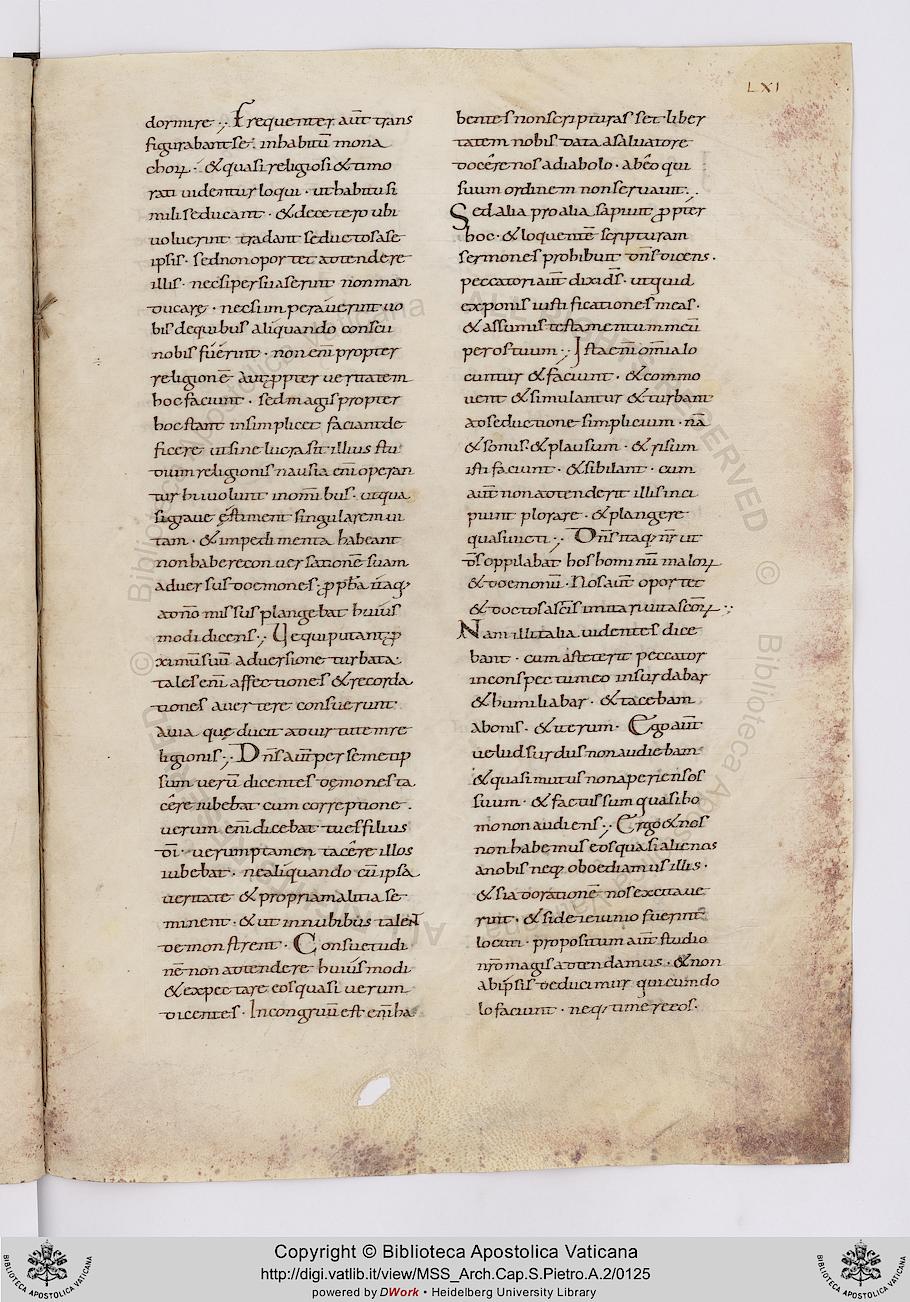 LXI
dormire ·,· Frequenter aut̄ trans
figurabant se · inhabitū mona
choꝝ · & quasi religiosi & timo
rati uidentur loqui · ut habitu si
mili seducant · & de cetero ubi
uoluerint tradant seductos a se
ipsis · sed non oportet adtendere
illis · nec si persuaserint non man
ducare · nec si imperauerint uo
bis de quibus aliquando conscii
nobis fuerint · non enī propter
religionē aut ꝓpter ueritatem
hoc faciunt · sed magis propter
hoc stant in simplicet faciant de
ficere ut sine lucra sit illius stu
dium religionis nausia enī operan
tur hi uolunt in omībus · ut qua
si graue ęstiment singularem ui
tam · & impedimenta habeant
non habere conuersationē suam
aduersus doemones · ꝓpha itaq;
a dnō missus plangebat huius
modi dicens ·,· Ue qui putant ꝓ
ximū suū aduersione turbata ·
tales enī affectiones & recorda
tiones auertere consuerunt
auia que ducit ad uirtutem re
ligionis ·,· Dn̄s aut̄ per semetip
sum uerū dicentes dęmones ta
cēre iubebat cum correptione ·
uerum enī dicebat tu es filius
dī · uerumptamen tacēre illos
iubebat · ne aliquando cū ipsa
ueritate & propria malitia se
minent · & ut in nubibus talem
demonstrent · Consuetudi
nē non adtendere huiusmodi
& expectare eos quasi uerum
dicentes · Incongruū est enī ha
bentes nos scripturas set liber
tatem nobis data a saluatore
docēre nos a diabolo · ab eo qui
suum ordinem non seruauit ·.·
Sed alia pro alia sapiunt ꝓpter
hoc · & loquentē scripturam
sermones prohibuit dn̄s dicens ·
peccatori aut̄ dixi ds̄ · ut quid
exponis iustificationes meas ·
& assumis testamentum meū
per os tuum ·,· Ista enī omīa lo
cuntur & faciunt · & commo
uent & simulantur & turbant
ad seductione simplicium · nā
& sonus · & plausum · & risum
isti faciunt · & sibilant · cum
aut̄ non adtenderit illis inci
piunt plorare · & plangere
quasi uicti ·,· Dn̄s itaq; nr̄ ut
ds̄ oppilabat hos hominū maloꝝ
& doemoniū · Nos aut̄ oportet
& doctos a sc̄is imitari uita scōꝝ ·,·
Nam illi talia uidentes dice
bant · cum asteterit peccator
in conspectu meo insurdabar
& humiliabar · & tacebam
a bonis · & iterum · Ego aut̄
uelud surdus non audiebam
& quasi mutus non aperiens os
suum · & factus sum quasi ho
mo non audiens ·,· Ergo & nos
non habemus eos quasi alienos
a nobis neq; oboediamus illis ·
& si ad orationē nos excitaue
rint · & si de ieiunio fuerint
locuti · propositum aut̄ studio
nr̄o magis adtendamus · & non
ab ipsis deducimur qui cum do
lo faciunt · neq; timere eos ·
Copyright © Biblioteca Apostolica Vaticana
http://digi.vatlib.it/view/MSS_Arch.Cap.S.Pietro.A.2/0125
powered by DWork • Heidelberg University Library